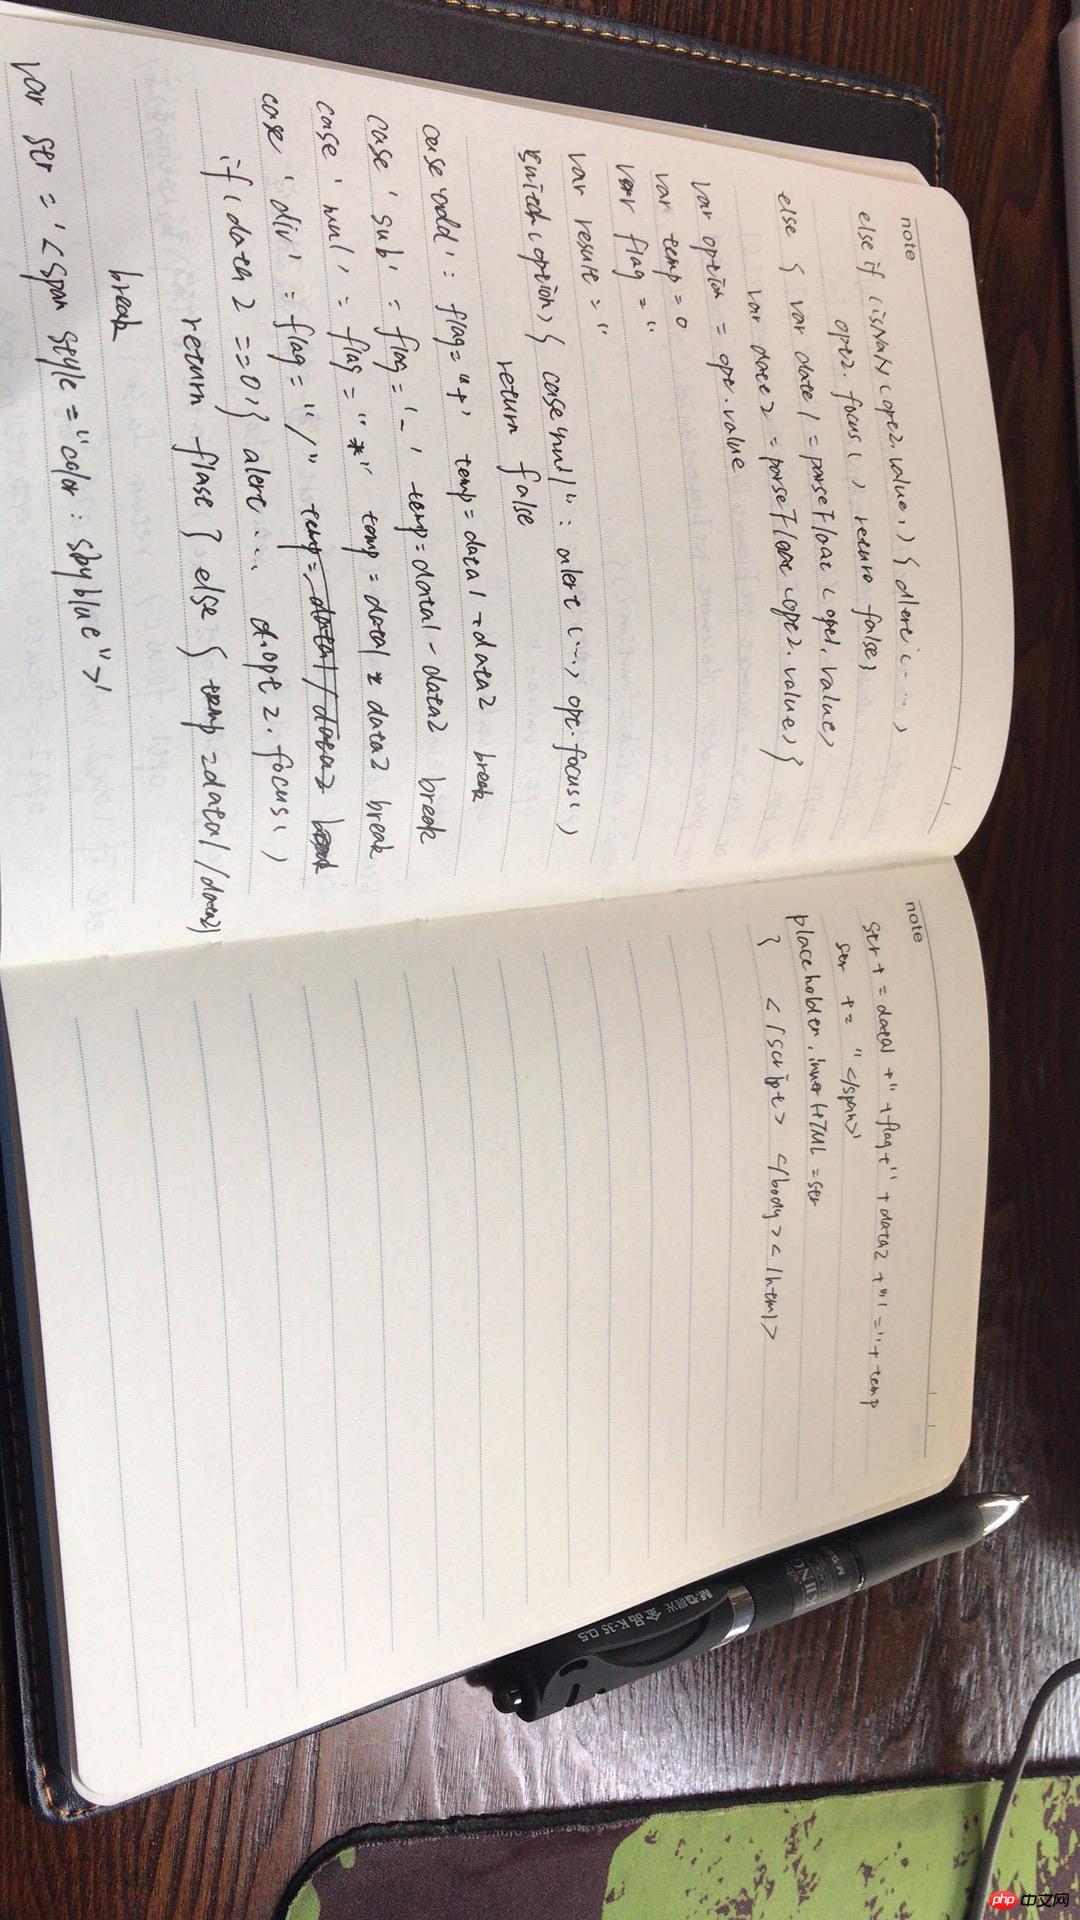 note
else if (isNaN(opt2.value)) { alert(...)
opt2.focus() return false}
else { var data1 = parseFloat(opt1.value)
var data2 = parseFloat(opt2.value) }
var option = opt.value
var temp = 0
var flag = "
var result = "
switch(option) { case null" : alert(...) opt.focus()
return false
case 'add' : flag = "+" temp = data1 + data2 break
case 'sub' : flag = '-' temp = data1 - data2 break
case 'mul' : flag = "*" temp = data1 * data2 break
case 'div' : flag = "/" temp = data1/data2 break
if (data2 == 0) } alert ... opt2.focus()
return flase } else { temp = data1/data2)
break
var str = '<span style = "color : skyblue">'
note
str += data1 + " + flag + " + data2 + "' = " + temp
str += "</span>'
placeholder.innerHTML = str
} </script> </body> </html>
M&G晨光 金品 K-35 0.5
php 中文网